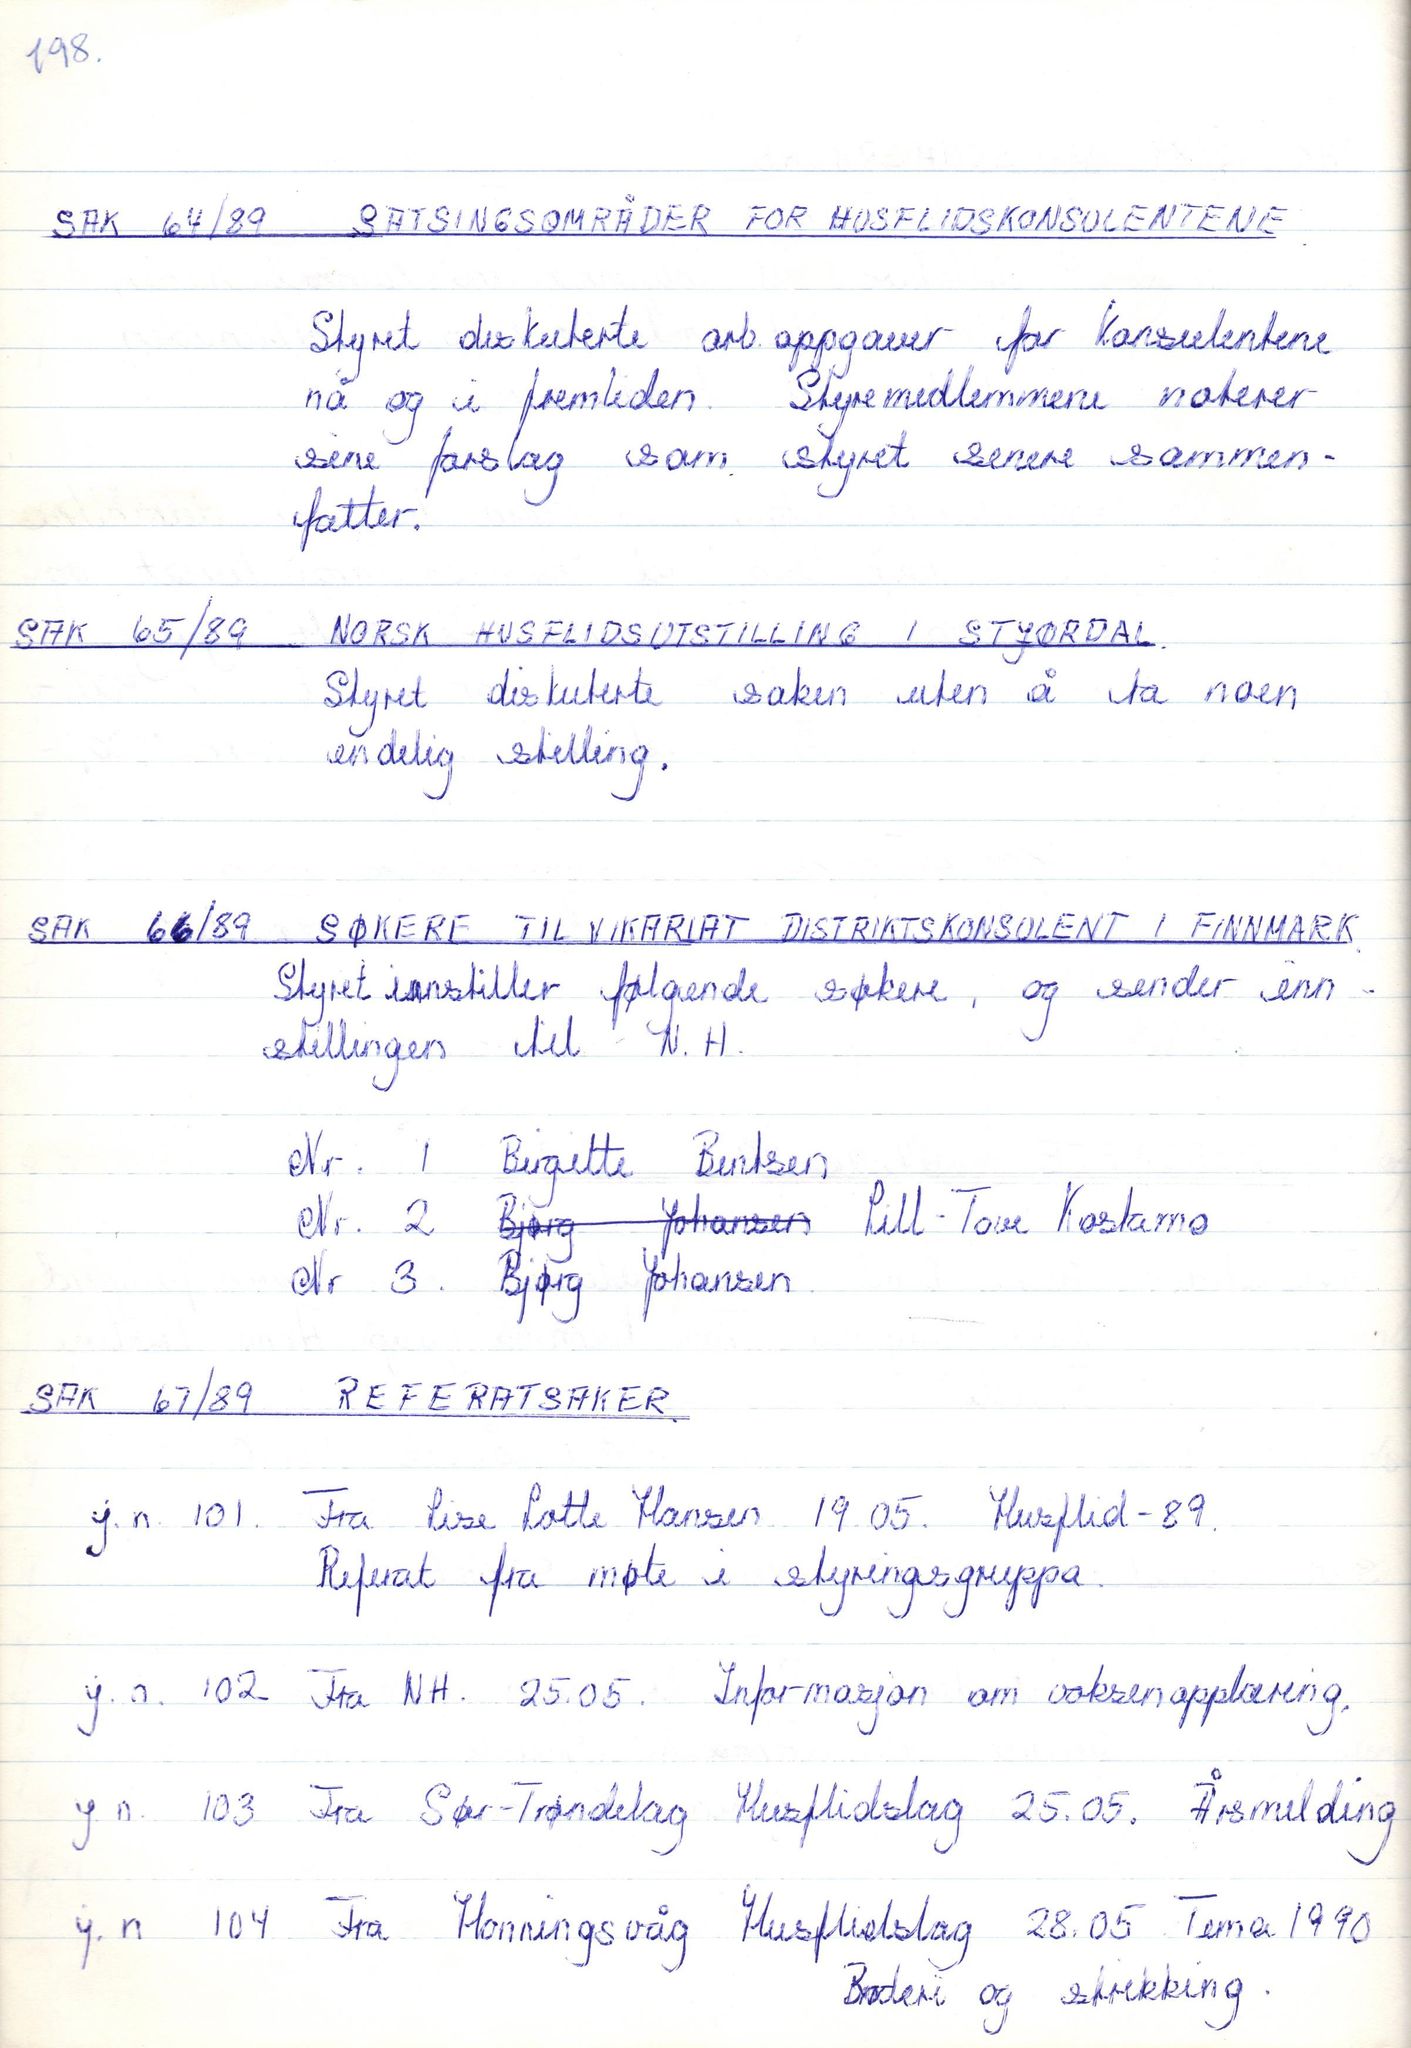 198.
SAK 64/89 SATSINGSOMRÅDER FOR HUSFLIDSKONSULENTENE
Styret diskuterte arb.oppgaver for konsulentene
nå og i fremtiden. Styremedlemmene noterer
sine forslag som styret senere sammen-
fatter.
SAK 65/89 NORSK HUSFLIDSUTSTILLING I STJØRDAL.
Styret diskuterte saken uten å ta noen
endelig stilling.
SAK 66/89 SØKERE TIL VIKARIAT DISTRIKTSKONSULENT I FINNMARK.
Styret innstiller følgende søkere, og sender inn-
stillingen til N.H.
Nr. 1 Birgitte Bentsen
Nr. 2 Bjørg Johansen Lill-Tove Kostamo
Nr 3. Bjørg Johansen.
SAK 67/89 REFERATSAKER.
j.n. 101. Fra Lise Lotte Hansen 19.05. Husflid-89.
Referat fra møte i styringsgruppa.
j.n. 102 Fra NH. 25.05. Informasjon om voksenopplæring.
j n. 103 Fra Sør-Trøndelag Husflidslag 25.05. Årsmelding
j.n 104 Fra Honningsvåg Husflidslag 28.05 Tema 1990
Broderi og strikking.